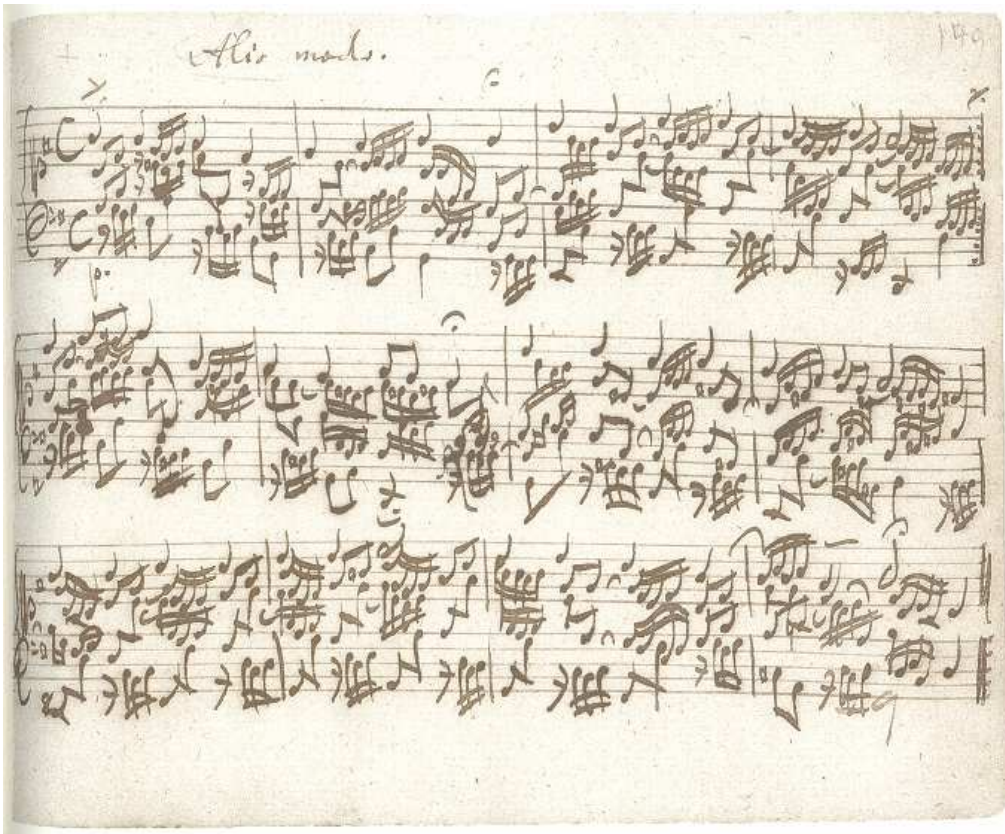 Alio modo.
149